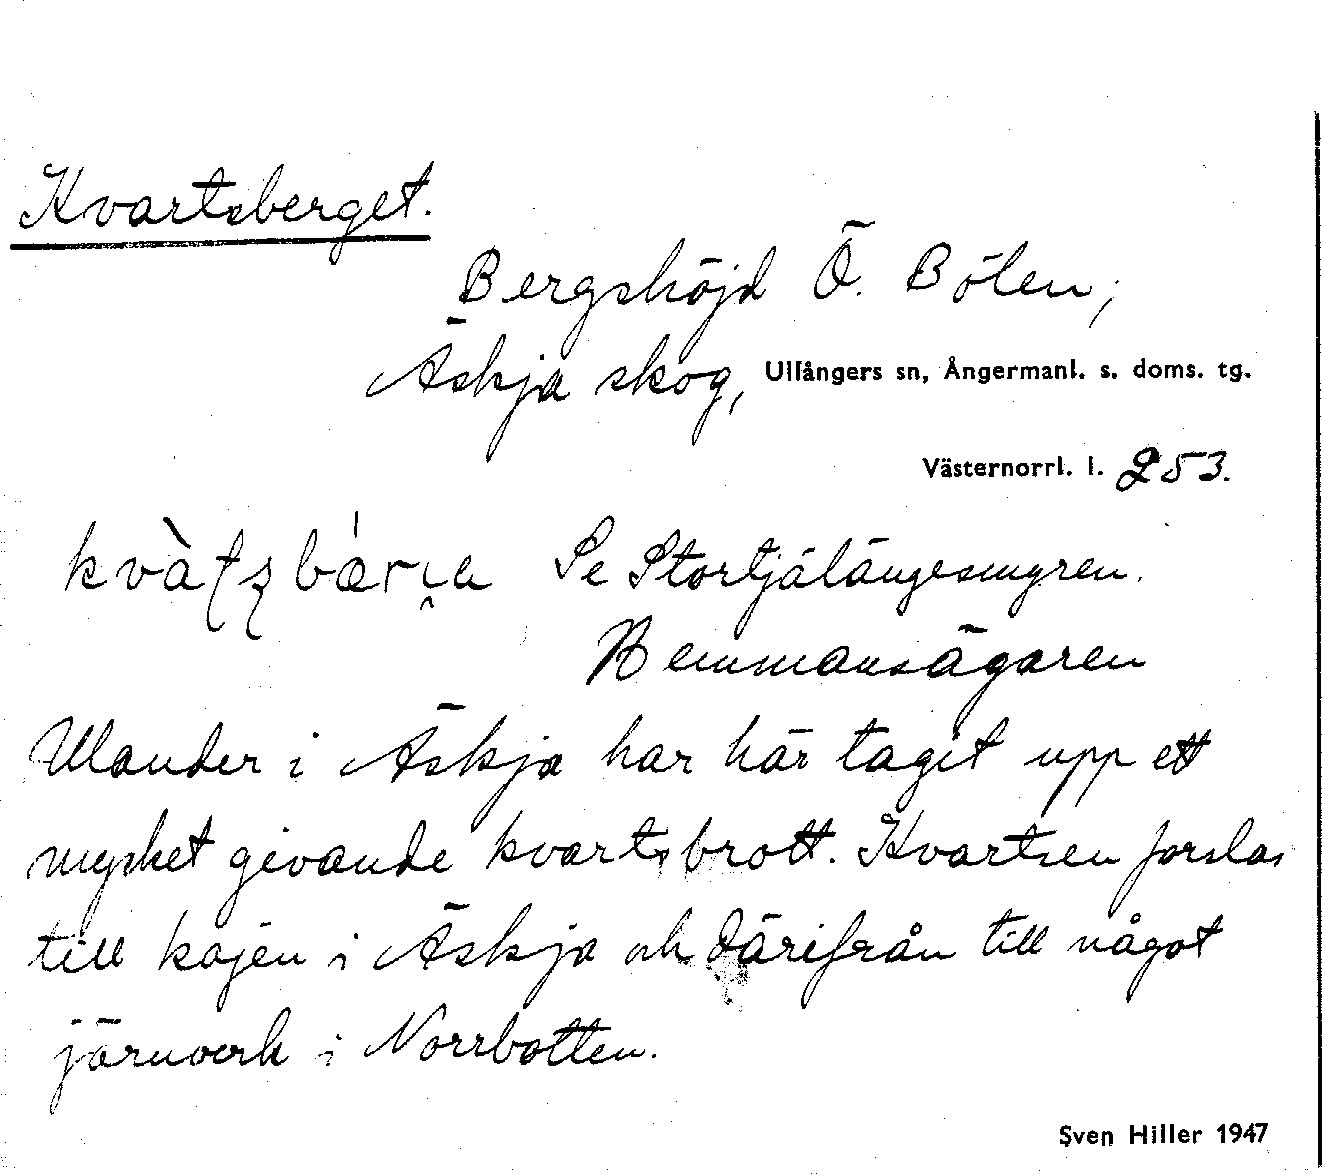 Kvartsberget.
Bergshöjd Ö. Bölen,
Äskja skog, Ullångers sn, Ångermanl. s. doms. tg.
Västernorrl. l. 253.
Se Stortjälängesmyren.
Hemmansägaren
Ulander i Äskja har här tagit upp ett
mycket givande kvartsbrott. Kvartsen forslas
till kajen i Äskja och därifrån till något
järnverk i Norrbotten.
Sven Hiller 1947